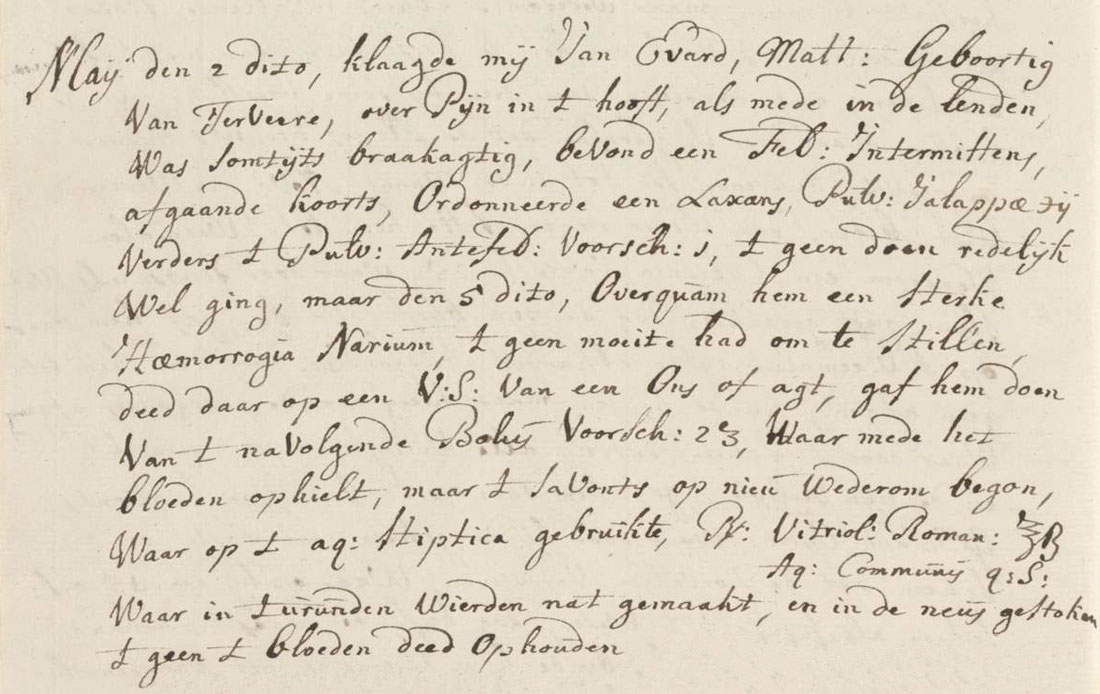 Maÿ den 2 dito, klaagde mij Jan Evard, Matt: Geboortig
Van TerVeere, over Pijn in t hooft, als mede in de lenden,
Was somtijts braakagtig, beVond een Feb: Intermittens,
afgaande koorts, Ordonneerde een Laxans, Pulv: Jalappæ ℈ij
Verders t Pulv: Antefeb: Voorsch: 1, t geen doen redelijk
Wel ging, maar den 5 dito, Overquam hem een sterke
Hæmorrogia Narium, t geen moeite had om te stillen,
deed daar op een V:S: Van een Ons of agt, gaf hem doen
Van t naVolgende Bolus Voorsch: 2 ʒ, Waar mede het
bloeden ophielt, maar t savonts op nieu Wederom begon,
Waar op t aq: Stiptica gebruikte, ℞: Vitriol: Roman: ℥ß
Aq: Communis q:S:
Waar in turunden Wierden nat gemaakt, en in de neus gestoken
t geen t bloeden deed Ophouden